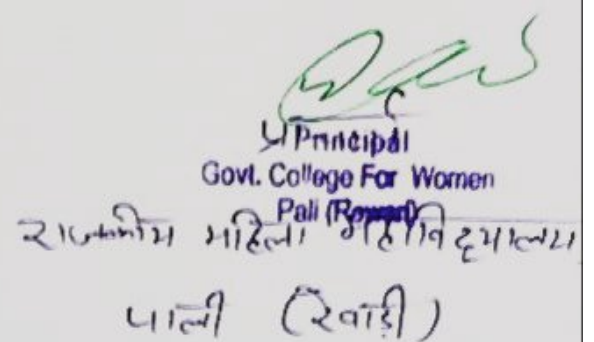 Principal
Govt. College For Women
Pali (Rewari)
राजकीय महिला महाविद्यालय
पाली (रेवाड़ी)